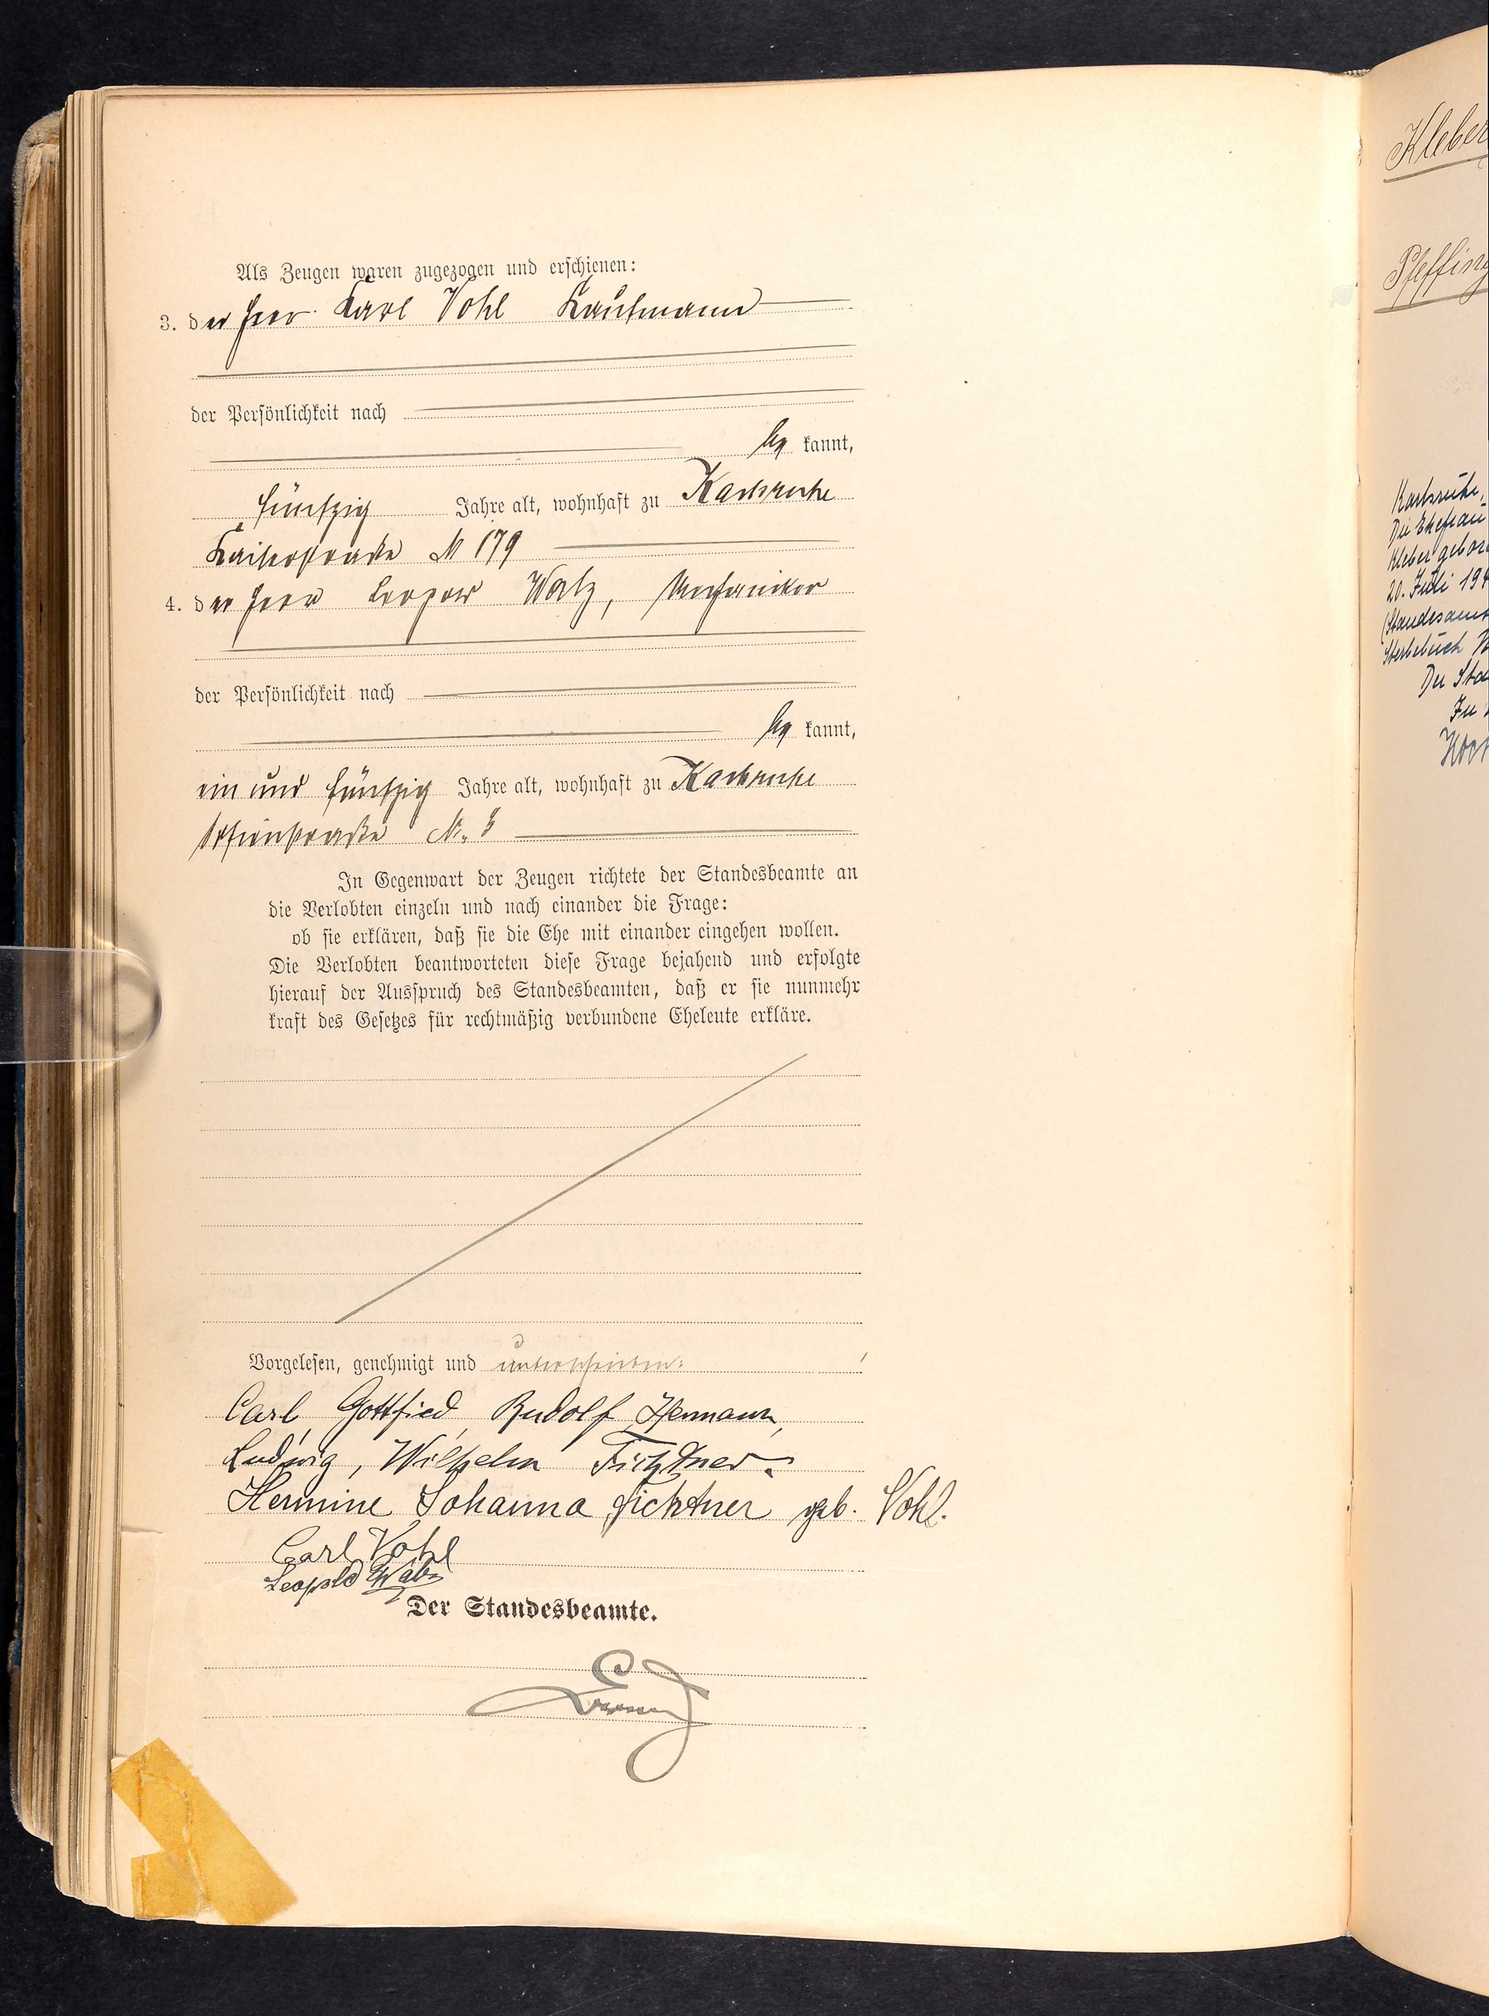 Als Zeugen waren zugezogen und erschienen:
3. der Herr Karl Vohl Kaufmann
der Persönlichkeit nach
be kannt,
fünfzig Jahre alt, wohnhaft zu Karlsruhe
Kaiserstraße N 179
4. der Herr Leopold Walz, Mechaniker
der Persönlichkeit nach
be kannt,
ein und fünfzig Jahre alt, wohnhaft zu Karlsruhe
Sofienstraße N.
In Gegenwart der Zeugen richtete der Standesbeamte an
die Verlobten einzeln und nach einander die Frage:
ob sie erklären, daß sie die Ehe mit einander eingehen wollen.
Die Verlobten beantworteten diese Frage bejahend und erfolgte
hierauf der Ausspruch des Standesbeamten, daß er sie nunmehr
kraft des Gesetzes für rechtmäßig verbundene Eheleute erkläre.
Vorgelesen, genehmigt und unterschrieben:
Carl, Gottfried, Rudolf, Hermann,
Ludwig, Wilhelm Fichtner.
Hermine Johanna Fichtner geb. Vohl.
Carl Vohl
Leopold Walz
Der Standesbeamte.
Kleber
Pfeffing
Karlsruhe,
Die Ehefrau
Kleber gebor
20. Juli 194
(Standesamt
Sterbebuch N
Der Sta
In